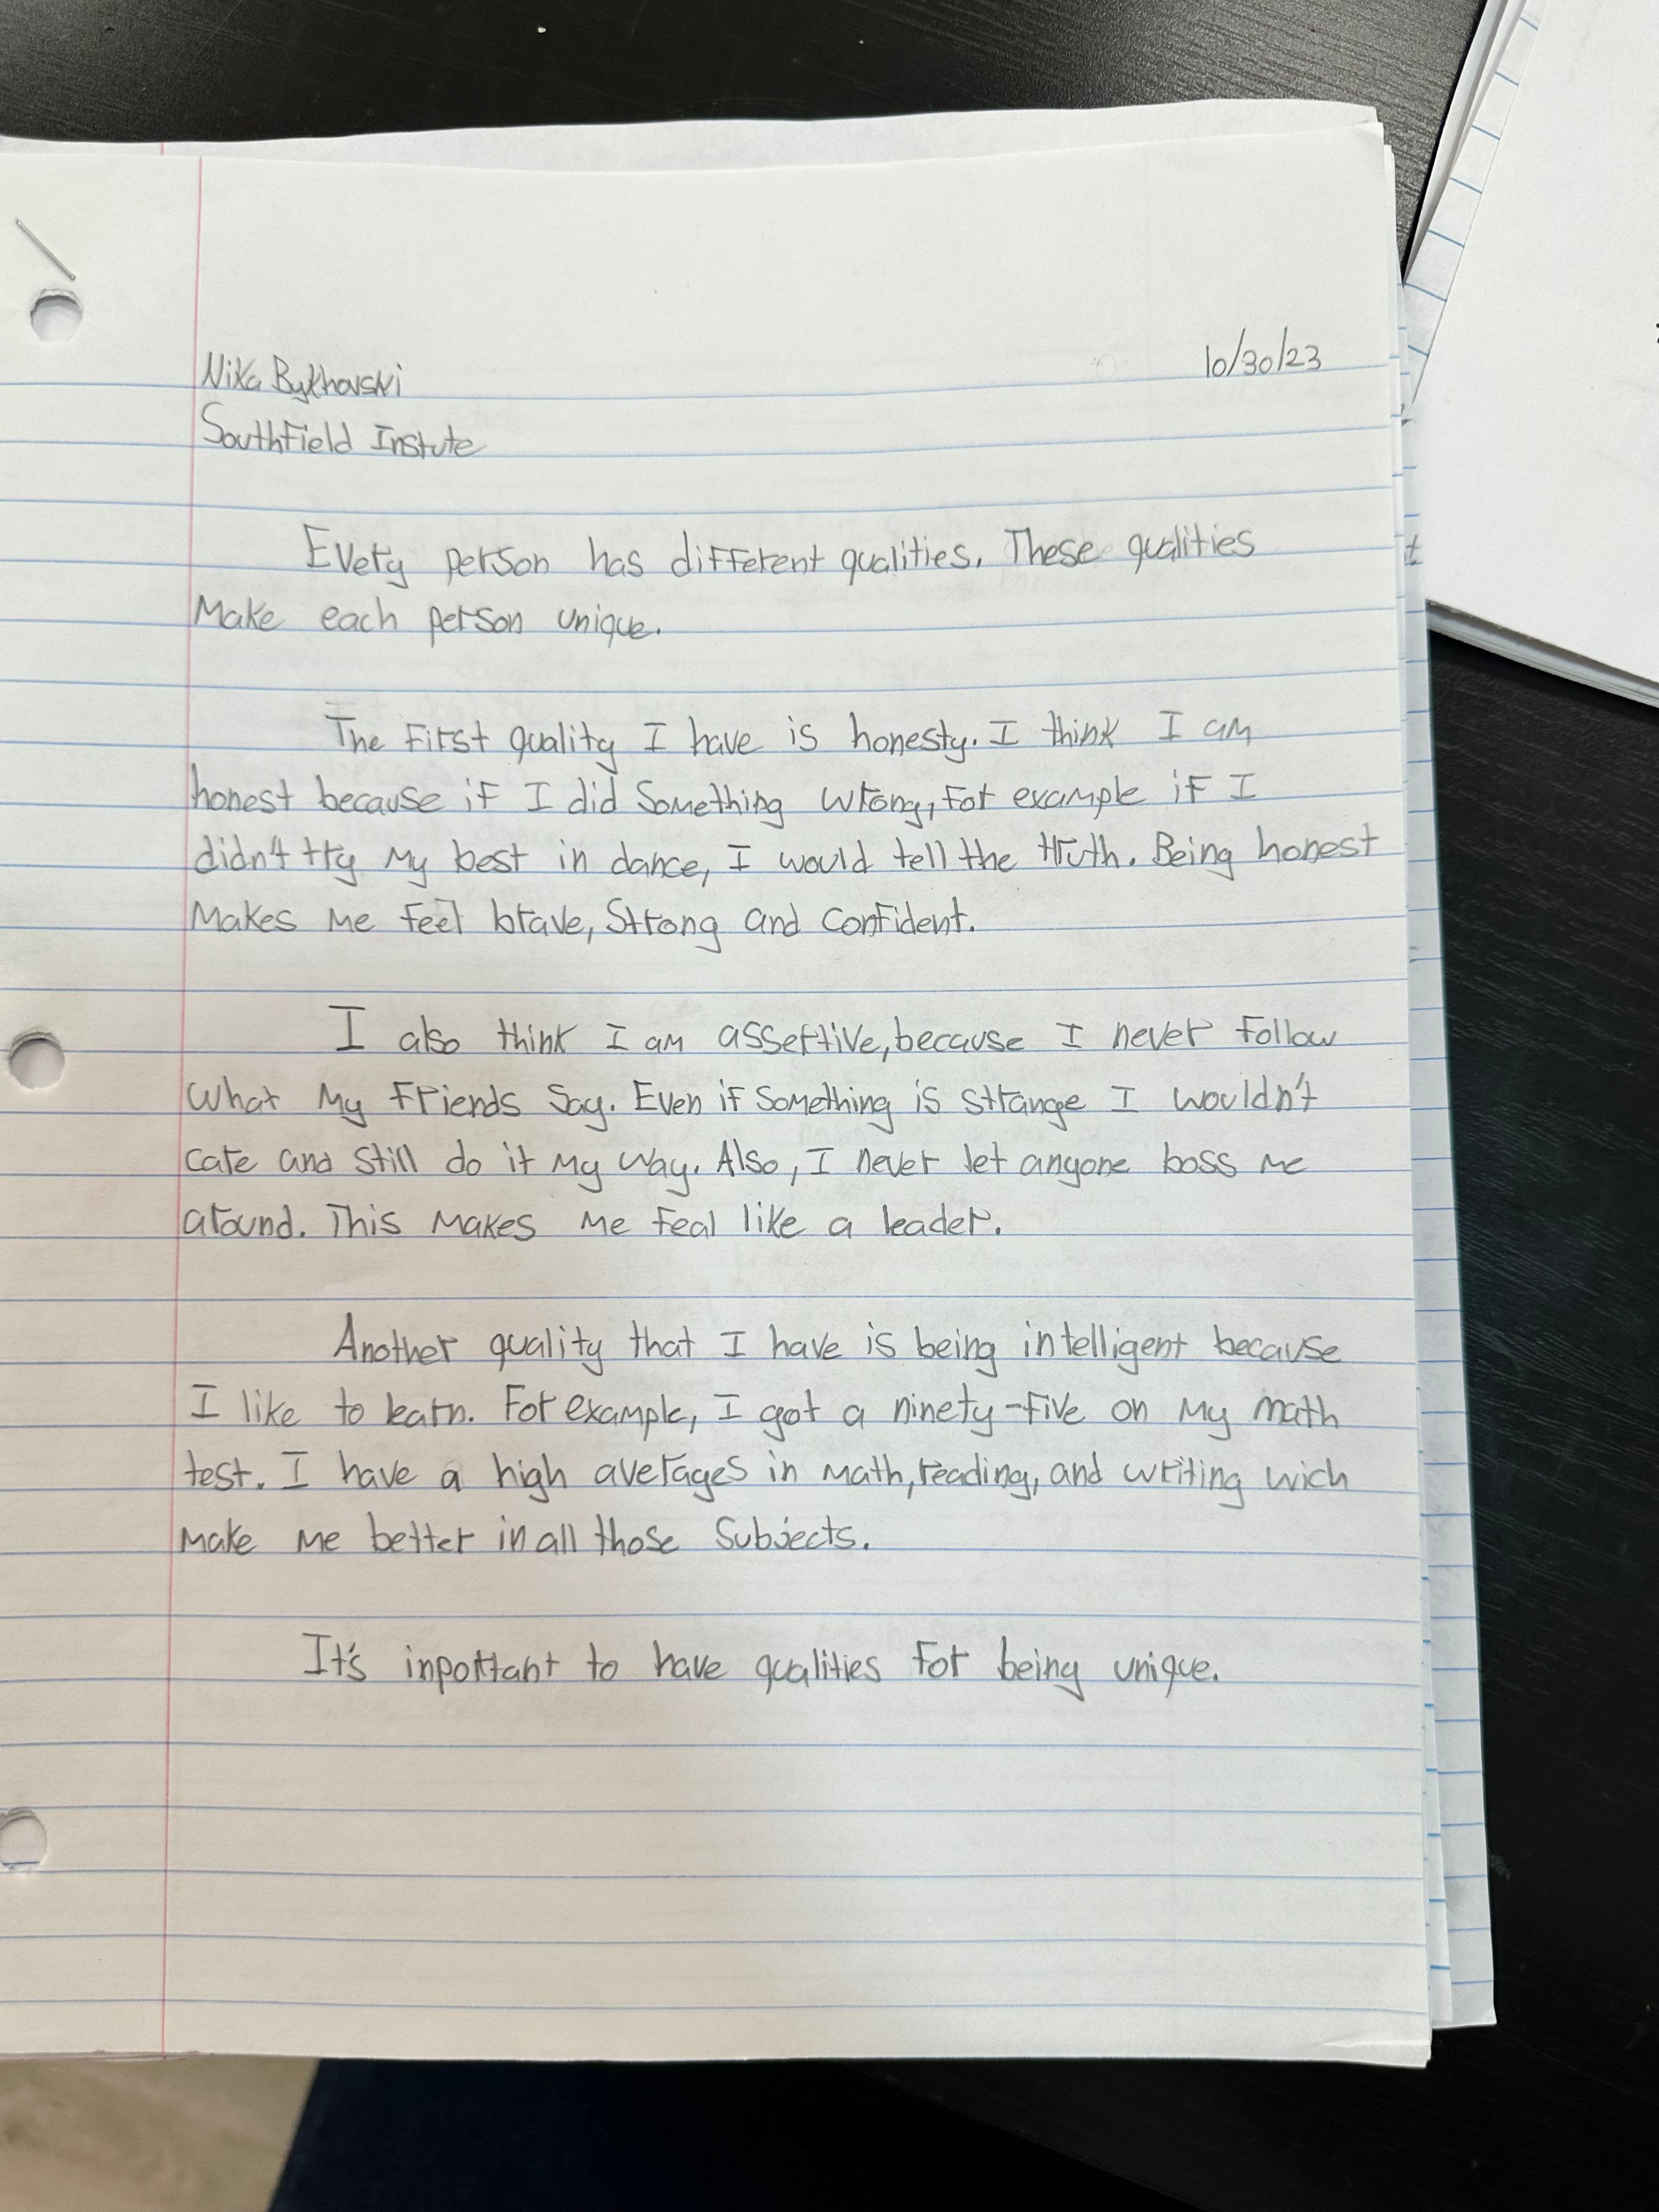 Nika Bykhovski 10/30/23
Southfield Instute
Every person has different qualities. These qualities
Make each person unique.
The first quality I have is honesty. I think I am
honest because if I did something wrong, for example if I
didn't try my best in dance, I would tell the truth. Being honest
makes me feel brave, strong and confident.
I also think I am assertive, because I never follow
what my friends say. Even if something is strange I wouldn't
care and still do it my way. Also, I never let anyone boss me
around. This makes me feal like a leader.
Another quality that I have is being intelligent because
I like to learn. For example, I got a ninety-five on my math
test. I have a high averages in math, reading, and writing wich
make me better in all those subjects.
It's inportant to have qualities for being unique.